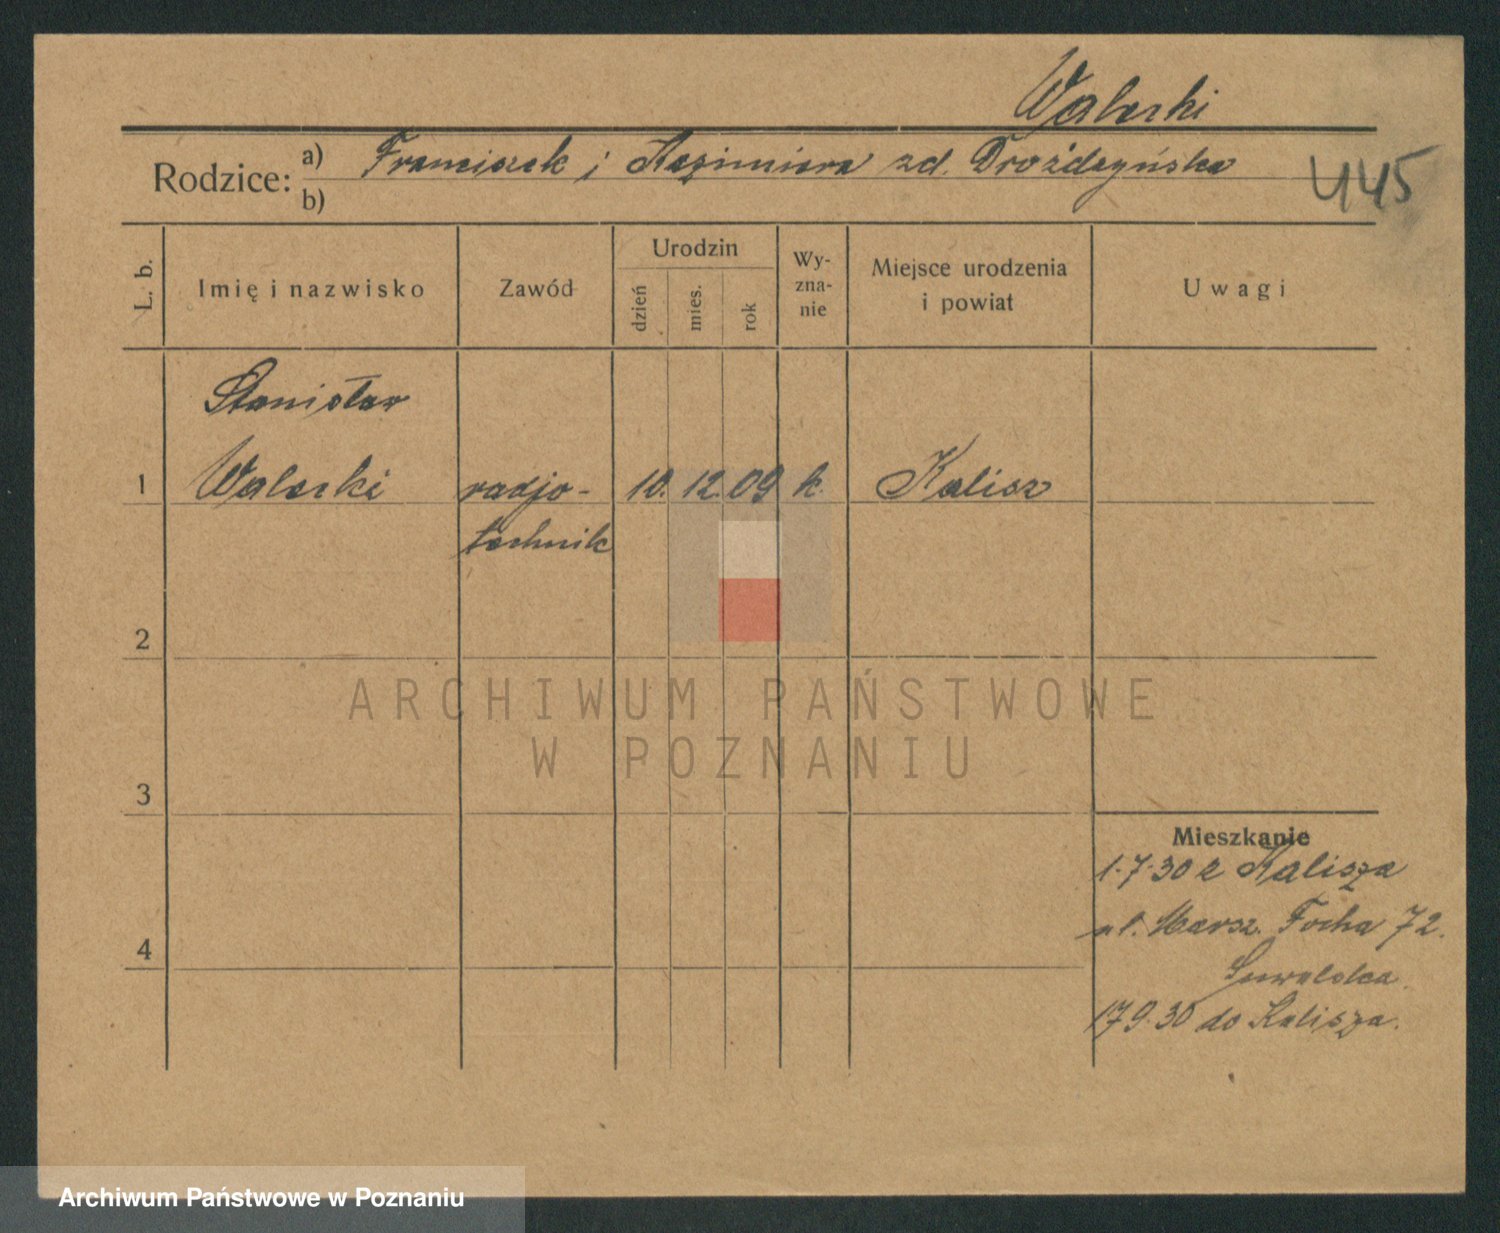 Walerki
Rodzice: a) Franciszek i Kazimiera zd. Drożdżyńska
b)
445
L. b.
Imię i nazwisko
Zawód
Urodzin
dzień
mies.
rok
Wy-
zna-
nie
Miejsce urodzenia
i powiat
Uwagi
Stanisław
1 Walerki radjo- 10. 12. 09 k. Kalisz
technik
2
ARCHIWUM PAŃSTWOWE
W POZNANIU
3
Mieszkanie
1.7.30 z Kalisza
ul. Marsz. Focha 72.
4
17.9.30 do Kalisza.
Archiwum Państwowe w Poznaniu